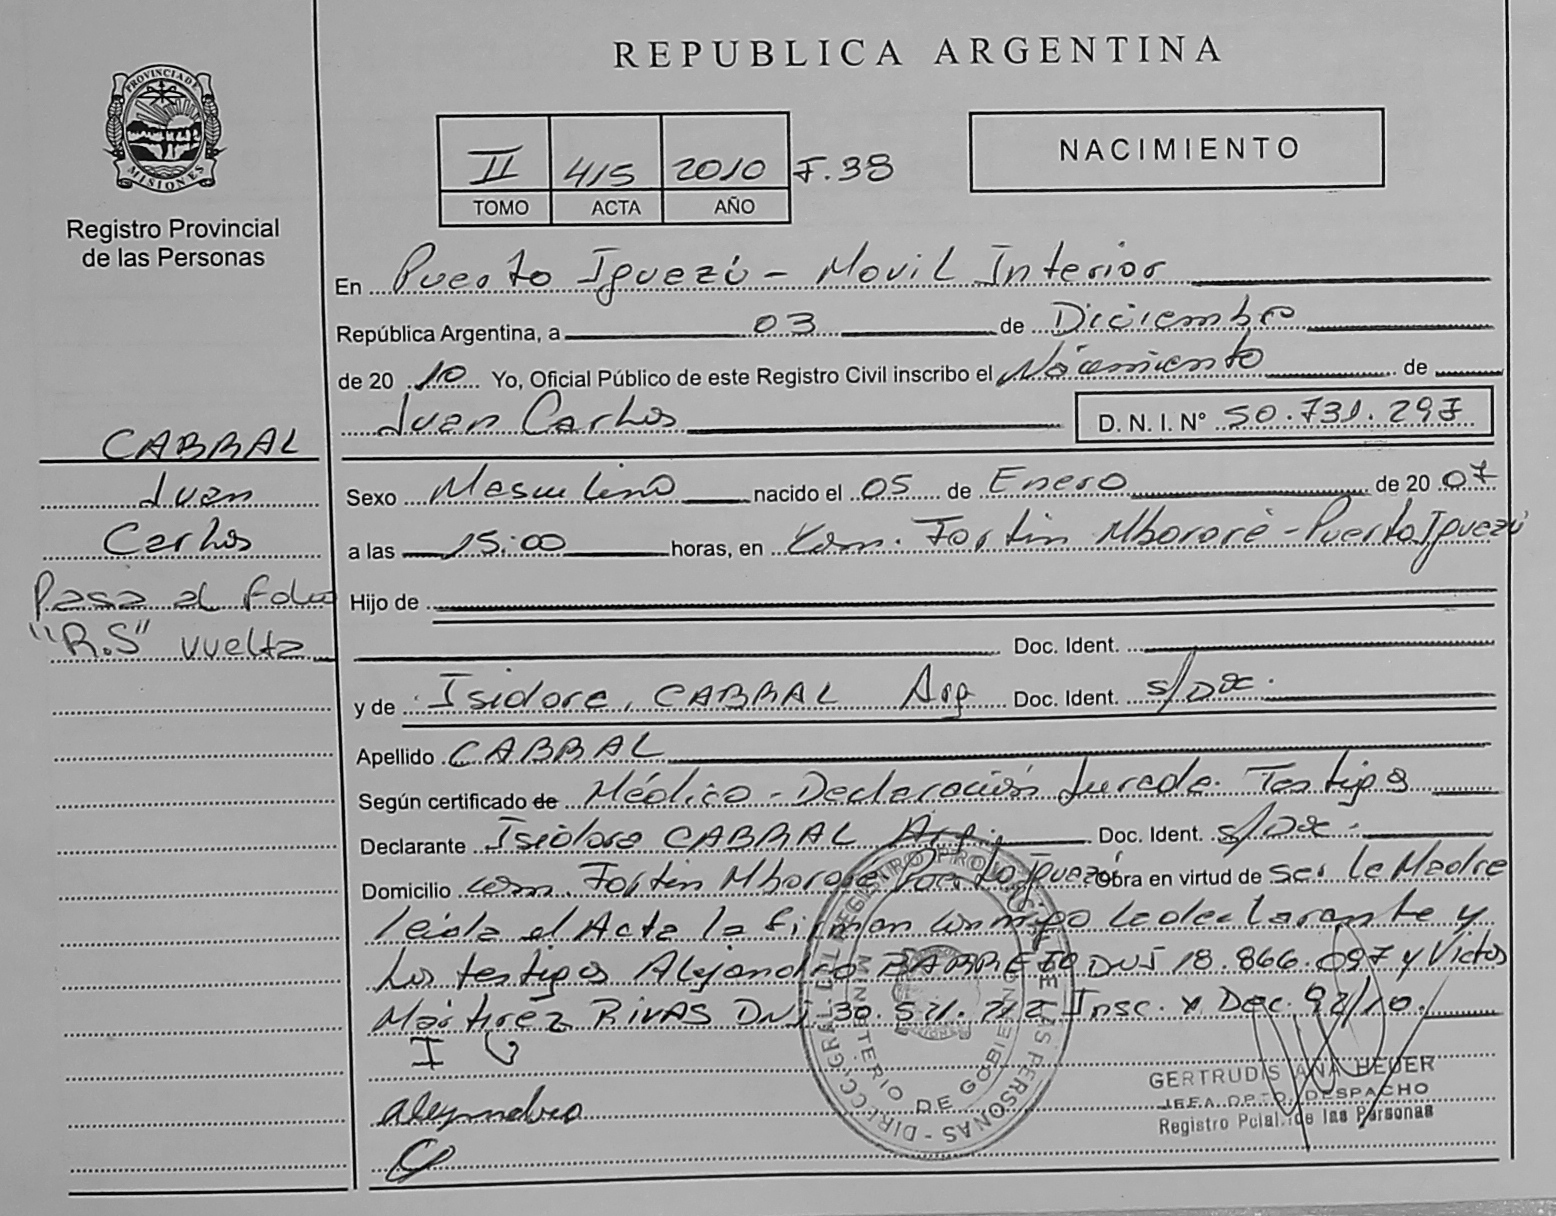 REPUBLICA ARGENTINA
PROVINCIA DE
MISIONES
Registro Provincial
de las Personas
II 415 2010 F.38
TOMO ACTA AÑO
NACIMIENTO
En Puerto Iguazú - Movil Interior
República Argentina, a 03 de Diciembre
de 2010 Yo, Oficial Público de este Registro Civil inscribo el Nacimiento de
Juan Carlos D. N. I. N° 50.731.297
CABRAL
Juan
Carlos
Pasa al folio
"R.S" vuelta
Sexo Masculino nacido el 05 de Enero de 2007
a las 15:00 horas, en Com. Fortin Mbororé - Puerto Iguazú
Hijo de
Doc. Ident.
y de Isidora, CABRAL Arg Doc. Ident. s/Doc.
Apellido CABRAL
Según certificado de Médico - Declaración Jurada. Testigos
Declarante Isidora CABRAL Arg. Doc. Ident. s/Doc.
Domicilio Com. Fortin Mbororé Puerto Iguazú Obra en virtud de ser la Madre
leida el Acta la firman conmigo la declarante y
los testigos Alejandro BARRETO DNI 18.866.097 y Victor
Mártirez RIVAS DNI 30. Insc. x Dec. 92/10.
Alejandro
DIRECC. GRAL. DEL REGISTRO PROVINCIAL DE LAS PERSONAS
MINISTERIO DE GOBIERNO
GERTRUDIS ANA HEUER
JEFA DPTO. DESPACHO
Registro Pcial. de las Personas